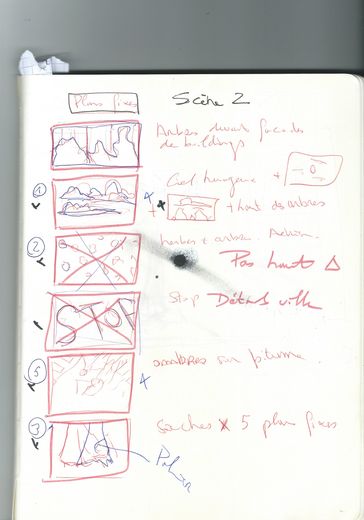 Plans fixes
Scène 2
Arbres devant façades
de buildings
1
Ciel +
+ + haut des arbres
2
herbes + arbres.
Pas haut
STOP
Stop Détails ville
5
ombres sur bitume.
3
souches x 5 plans fixes